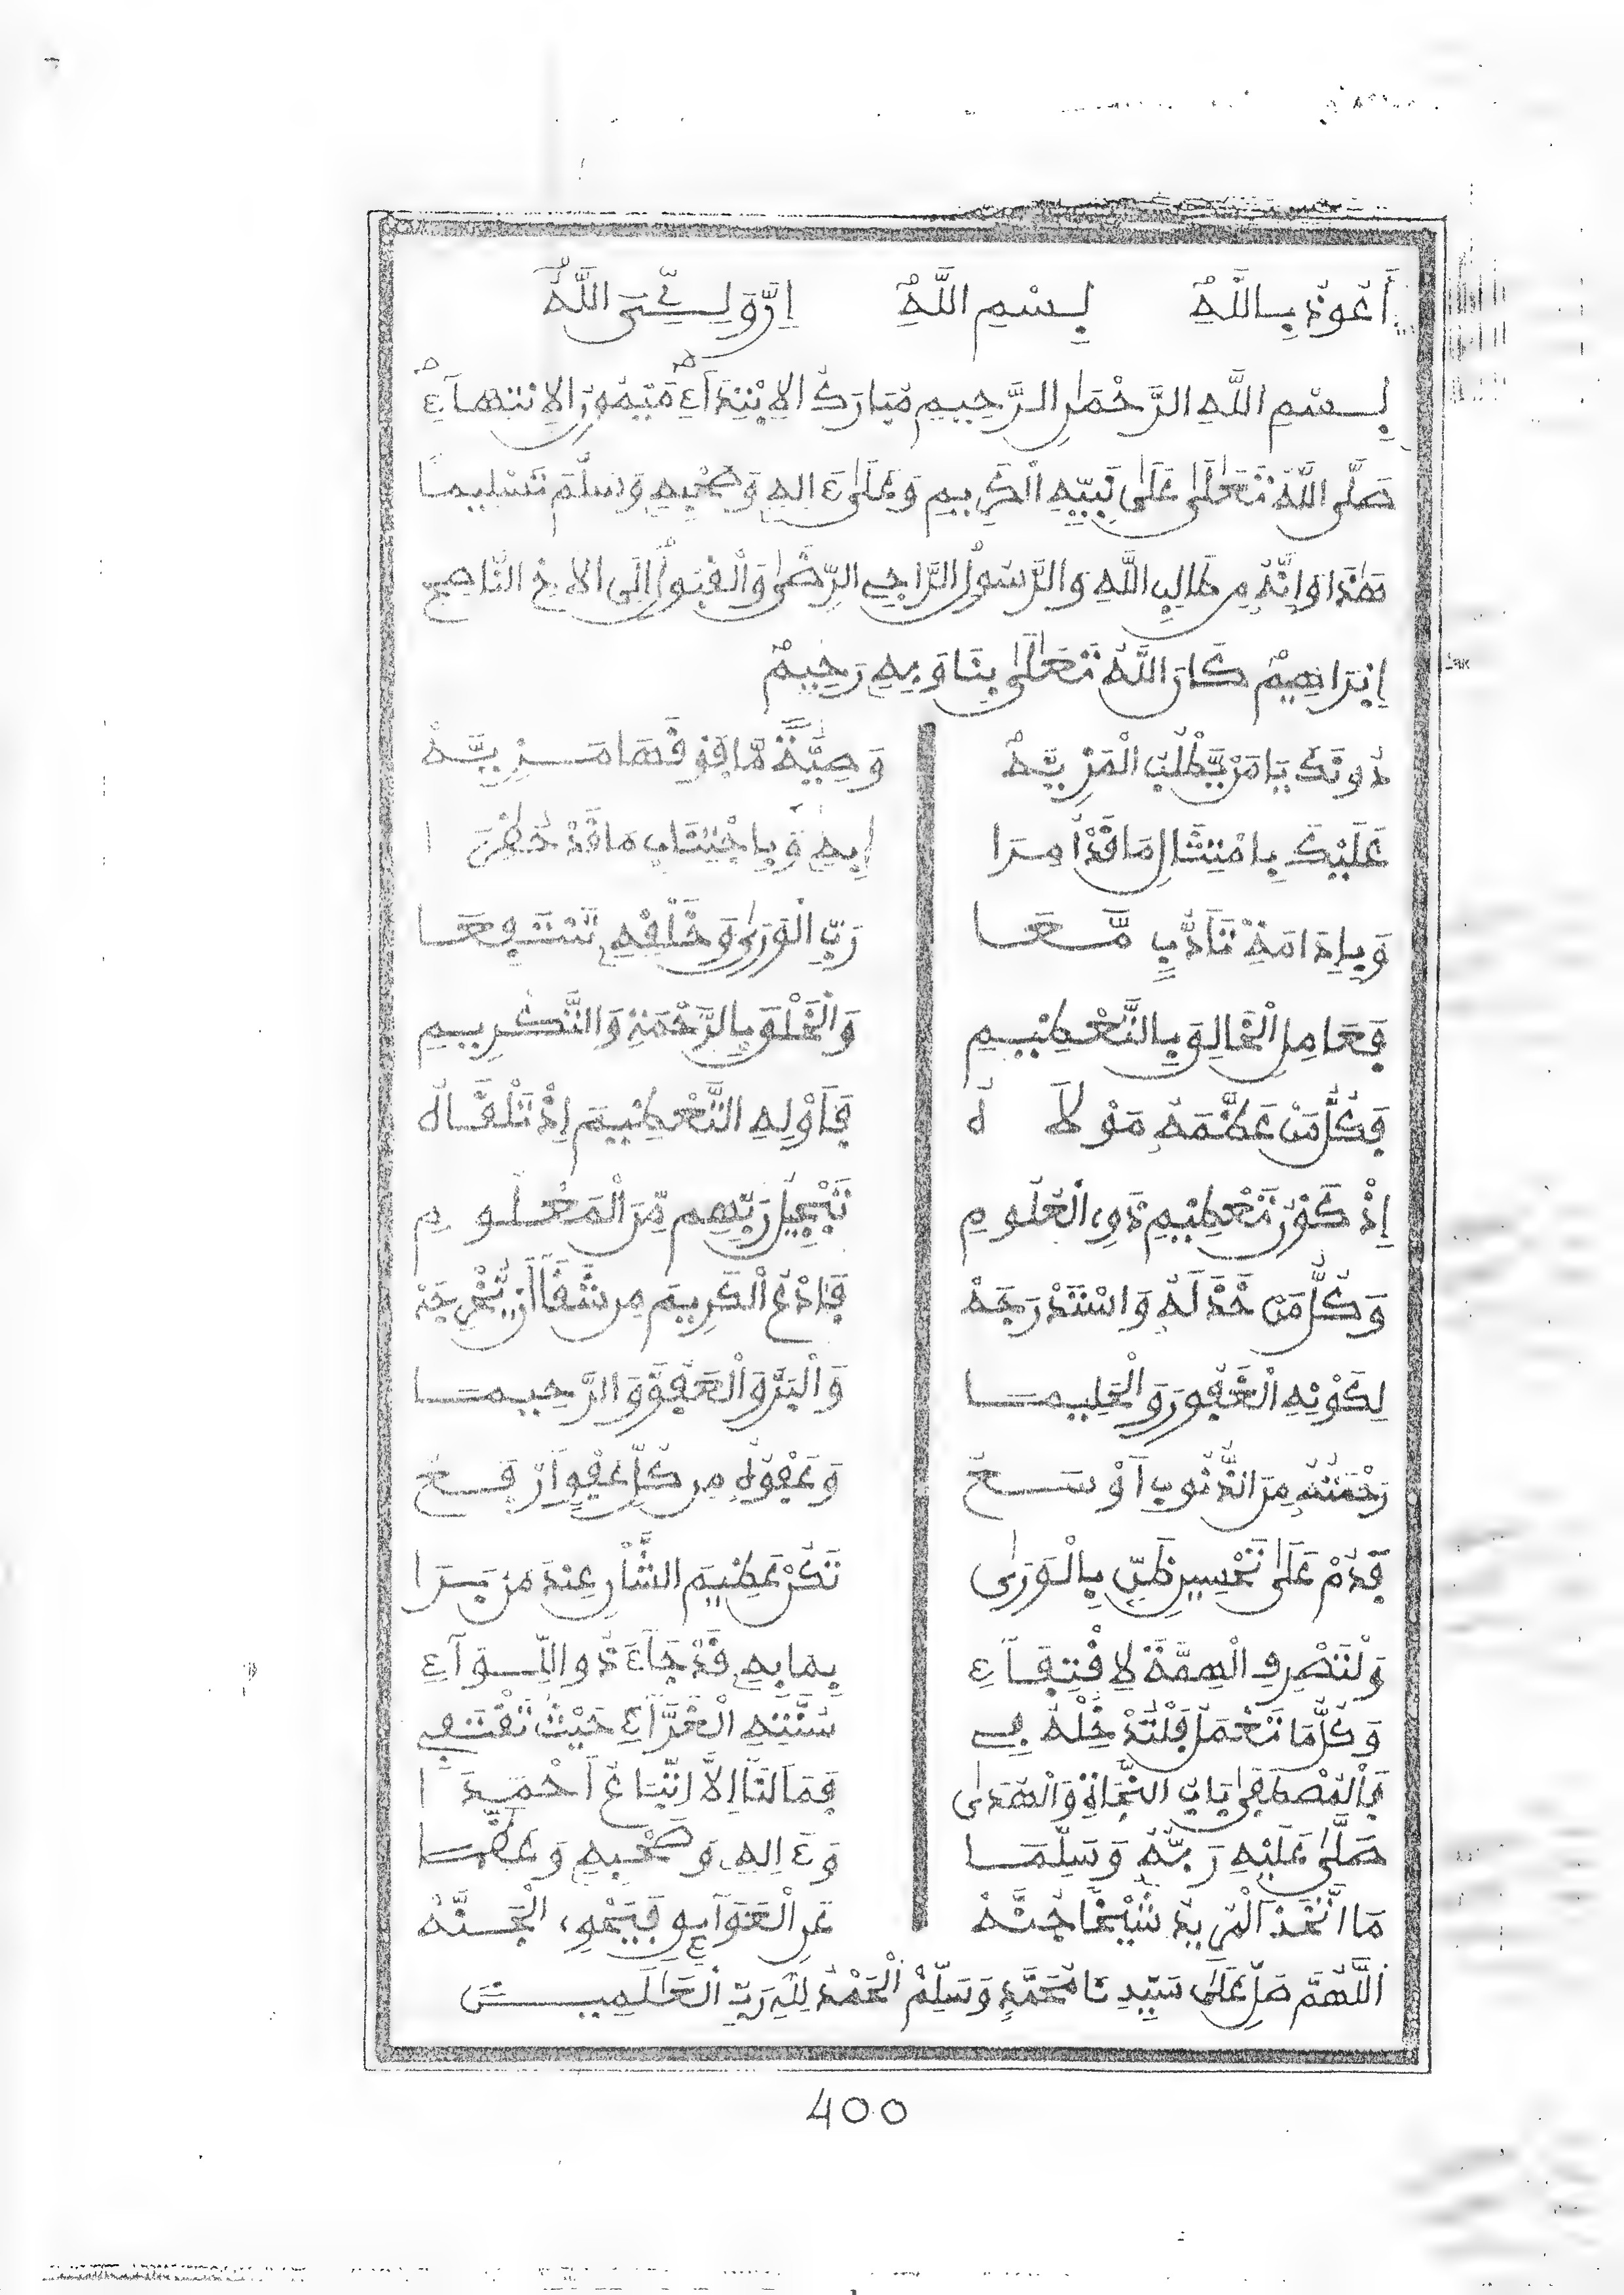 أَعُوذُ بِاللَّهِ بِسْمِ اللَّهِ إِنَّ وَلِيِّيَ اللَّهُ
بِسْمِ اللَّهِ الرَّحْمَٰنِ الرَّحِيمِ مُبَارَكُ الِابْتِدَاءِ مَيْمُونُ الِانْتِهَاءِ
صَلَّى اللَّهُ تَعَالَىٰ عَلَىٰ نَبِيِّهِ الْكَرِيمِ وَعَلَىٰ ءَالِهِ وَصَحْبِهِ وَسَلَّمَ تَسْلِيمًا
هَٰذَا وَإِنَّهُ مِن طَالِبِ اللَّهِ وَالرَّسُولِ الرَّاجِي الرِّضَىٰ وَالْقَبُولَ إِلَى الْأَخِ النَّاصِحِ
إِبْرَاهِيمُ كَانَ اللَّهُ تَعَالَىٰ بِنَا وَبِهِ رَحِيمٌ
دُونَكَ يَا مَنْ يَّطْلُبُ الْمَزِيَّهْ وَصِيَّةً مَّا فَوْقَهَا مَزِيَّهْ
عَلَيْكَ بِامْتِثَالِ مَا قَدْ أُمِرَا بِهِ وَبِاجْتِنَابِ مَا قَدْ حُظِرَا
وَبِإِدَامَةِ تَأَدُّبٍ مَّعَا رَبِّ الْوَرَىٰ وَخَلْقِهِ تَنْتَفِعَا
فَعَامِلِ الْخَالِقَ بِالتَّعْظِيمِ وَالْخَلْقَ بِالرَّحْمَةِ وَالتَّكْرِيمِ
فَكُلُّ مَنْ عَظَّمَهُ مَوْلَاهُ فَأَوْلِهِ التَّعْظِيمَ إِذْ تَلْقَاهُ
إِذْ كَوْنُ تَعْظِيمِ ذَوِي الْعُلُومِ تَبْجِيلَ رَبِّهِم مِّنَ الْمَعْلُومِ
وَكُلُّ مَنْ خَذَلَهُ وَاسْتَدْرَجَهْ فَادْعُ الْكَرِيمَ مِن شَقًا أَن يُّخْرِجَهْ
لِكَوْنِهِ الْغَفُورَ وَالْحَلِيمَا وَالْبَرَّ وَالْعَفُوَّ وَالرَّحِيمَا
رَحْمَتُهُ مِنَ الذُّنُوبِ أَوْسَعُ وَعَفْوُهُ مِن كُلِّ عَفْوٍ أَرْفَعُ
فَدُمْ عَلَىٰ تَحْسِينِ ظَنٍّ بِالْوَرَىٰ تَكُنْ عَظِيمَ الشَّأْنِ عِنْدَ مَنْ بَرَا
وَلْتَصْرِفِ الْهِمَّةَ لِاقْتِفَاءِ بِمَا بِهِ قَدْ جَاءَ ذُو اللِّوَاءِ
وَكُلُّ مَا تَعْمَلُ فَلْتُدْخِلْهُ فِي سُنَّتِهِ الْغَرَّاءِ حَيْثُ تَقْتَفِي
فَالْمُصْطَفَىٰ بَابُ النَّجَاةِ وَالْهُدَىٰ فَمَا لَنَا إِلَّا اتِّبَاعُ أَحْمَدَا
صَلَّىٰ عَلَيْهِ رَبُّهُ وَسَلَّمَا وَءَالِهِ وَصَحْبِهِ وَعَظَّمَا
مَا اتَّخَذَ الْمُرِيدُ شَيْخًا جُنَّهْ عَنِ الْعَوَائِقِ فَيَحْوِي الْجَنَّهْ
اللَّهُمَّ صَلِّ عَلَىٰ سَيِّدِنَا مُحَمَّدٍ وَسَلِّمْ الْحَمْدُ لِلَّهِ رَبِّ الْعَالَمِينَ
400